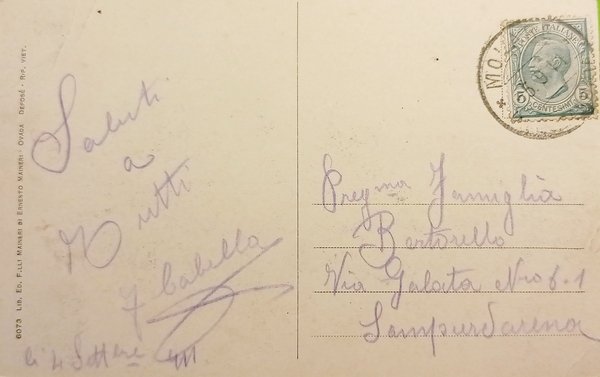 6073 LIB. ED. F.LLI MAINERI DI ERNESTO MAINERI - OVADA DEPOSÉ - RIP. VIET.
Saluti
a
Tutti
F Cabella
li 4 Settbre 911
POSTE ITALIANE
CENTESIMI
5 5
MOL
Pregma Famiglia
Bertorello
Via Galata Nro 6-1
Sampierdarena